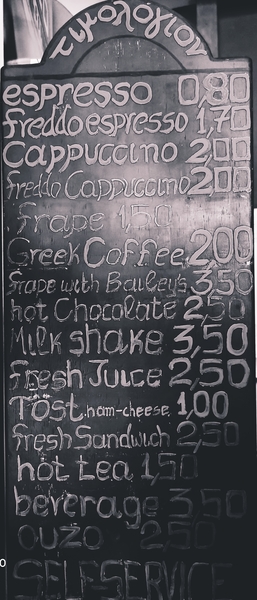 τιμολόγιον
espresso 0,80
freddo espresso 1,70
Cappuccino 2,00
freddo Cappuccino 2,00
frape 1,50
Greek Coffee 2,00
frape with Bailey's 3,50
hot Chocolate 2,50
Milk shake 3,50
fresh Juice 2,50
Tost.ham-cheese. 1,00
fresh Sandwich 2,50
hot tea 1,50
beverage 3,50
ouzo 2,50
SELF SERVICE